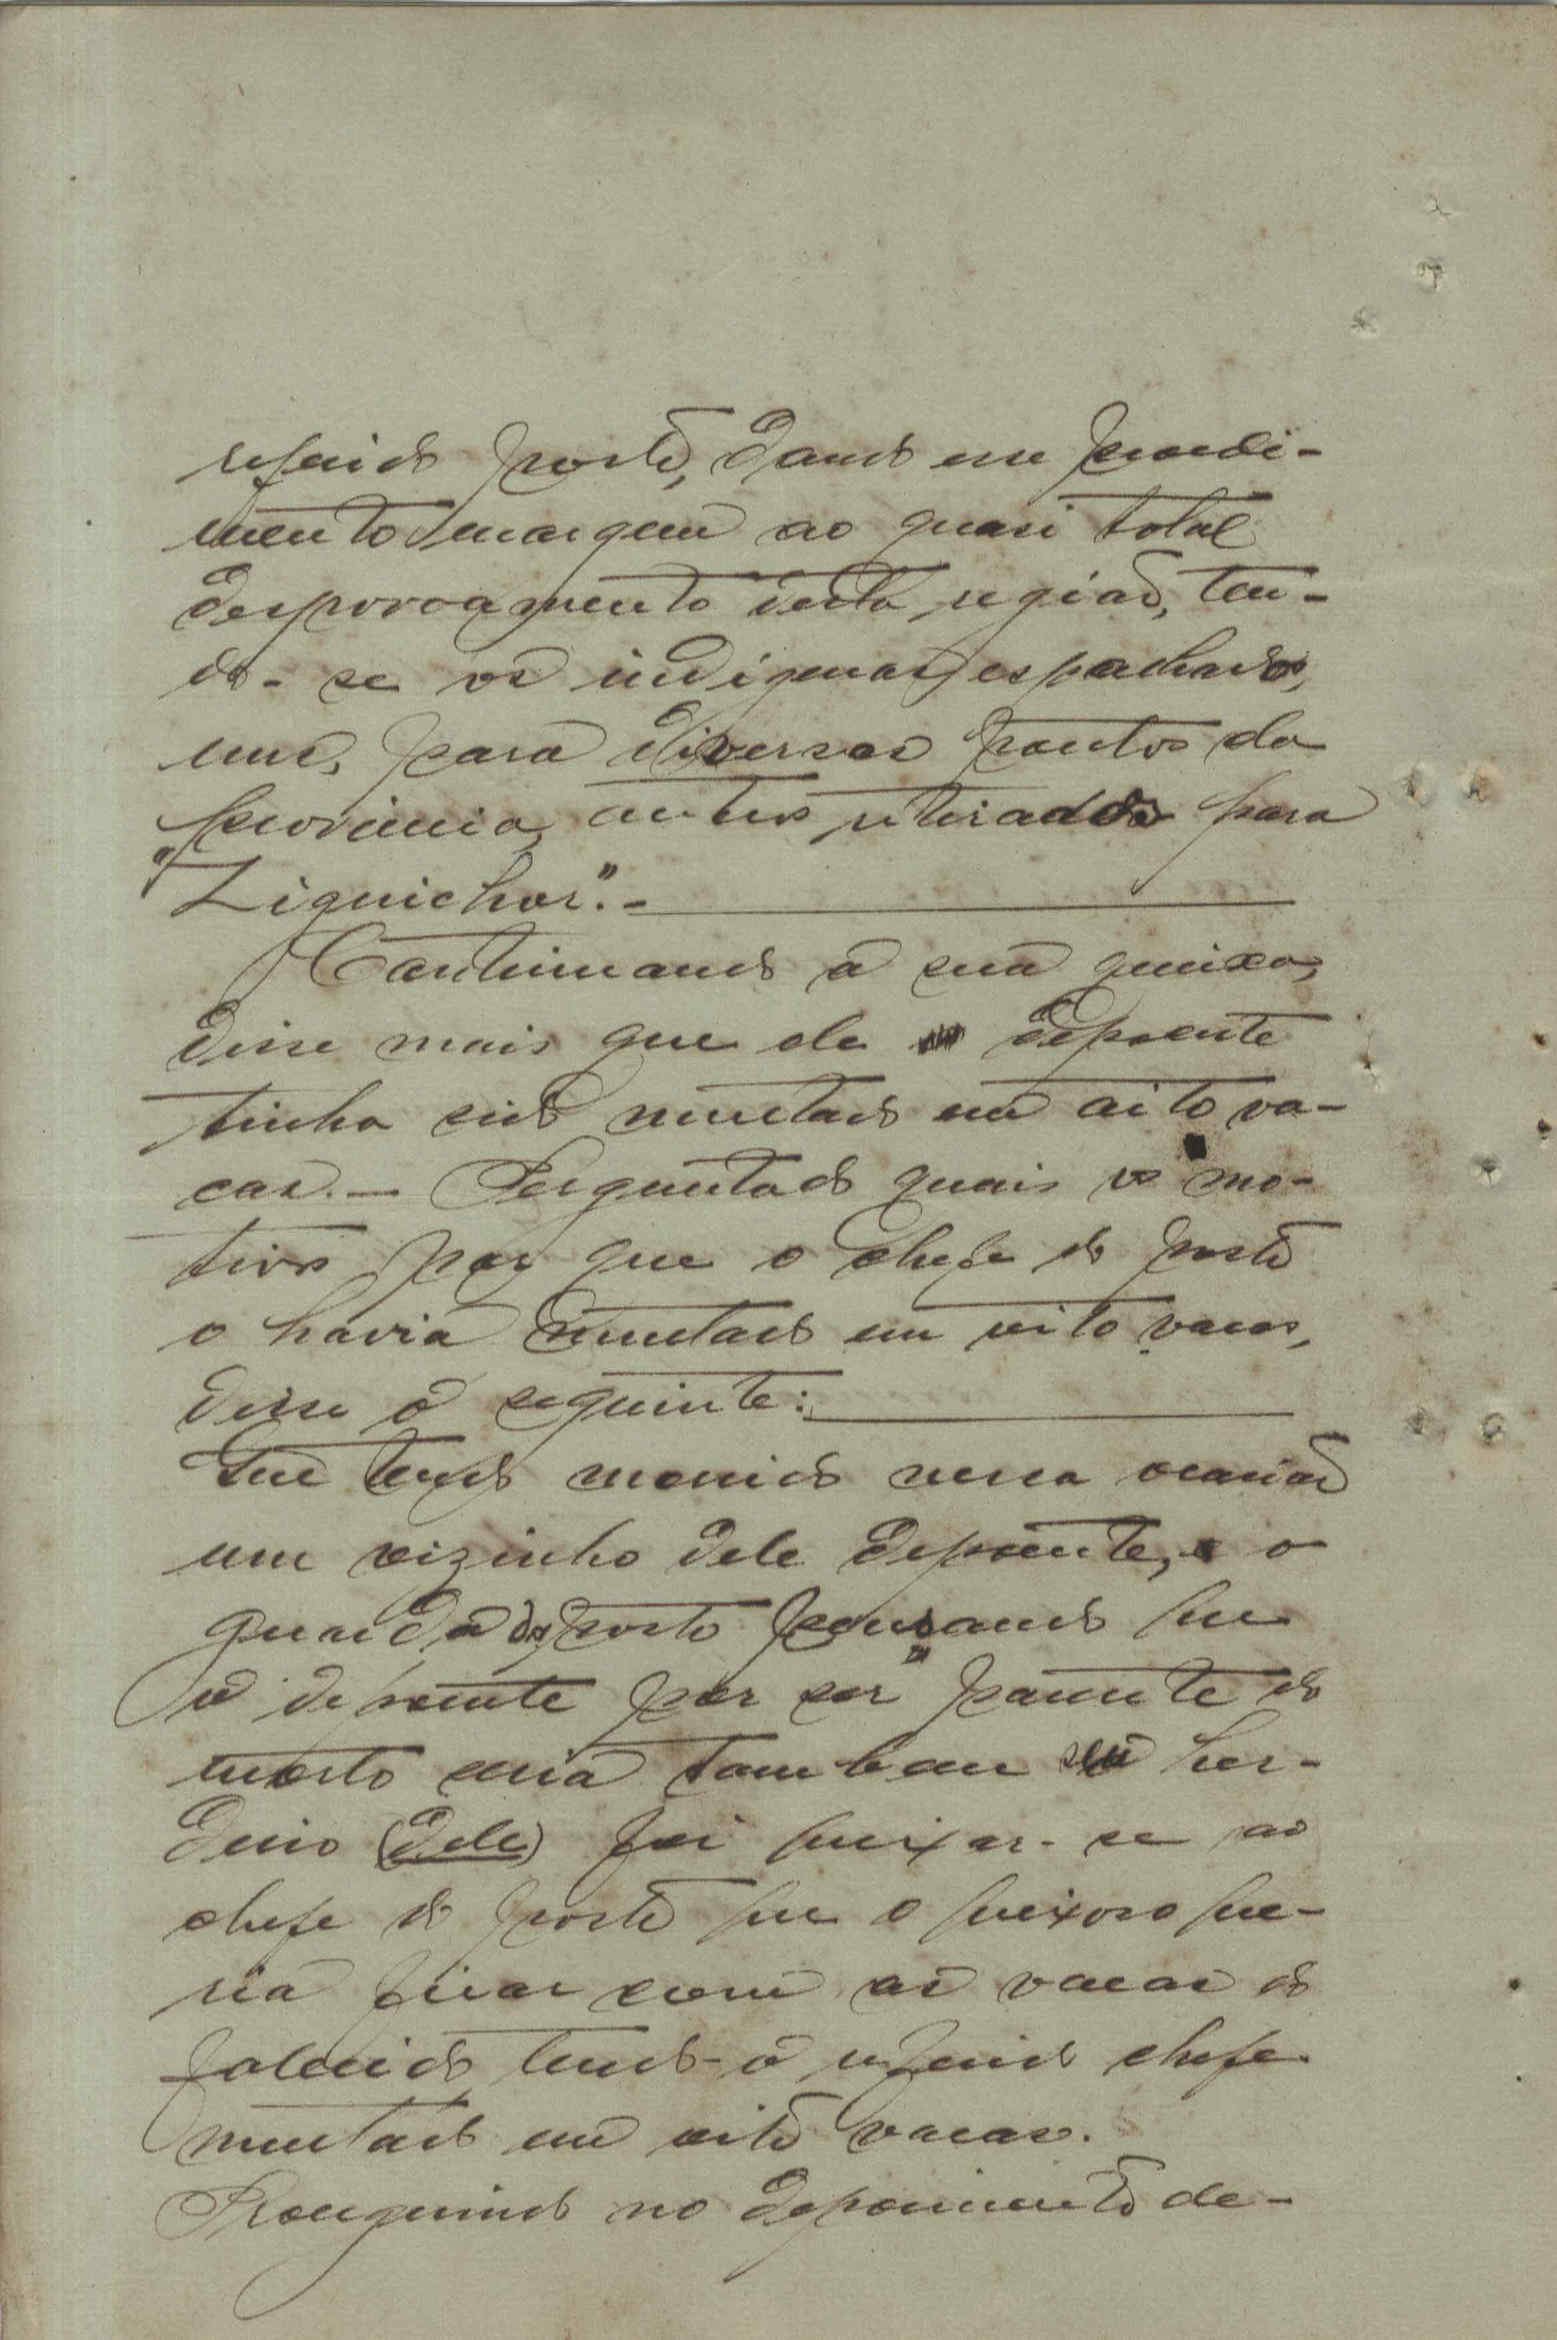 referido posto, dando esse procedi-
mento margem ao quasi total
despovoamento desta região, ten-
do-se os indigenas espachados,
uns, para diversos pontos da
provincia, outros retirados para
"Ziguichor".-
Continuando a sua queixa,
disse mais que ele depoente
tinha sido multado em oito va-
cas.- Perguntado quais os mo-
tivos por que o chefe do posto
o havia multado em oito vacas,
disse o seguinte:
Que tendo morrido nessa ocasião
um vizinho dele depoente, e o
guarda do posto pensando que
o depoente por ser parente do
morto seria tambem seu her-
deiro (dele) foi queixar-se ao
chefe do posto que o queixoso que-
ria ficar com as vacas do
falecido tendo-o referido chefe
multado em oito vacas.
Proseguindo no depoimento de-